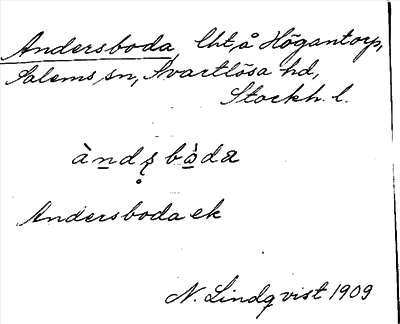 Andersboda, lht, å Högantorp,
Salems sn, Svartlösa hd,
Stockh. l.
àndʂ bò̠da
Andersboda ek
N. Lindqvist 1909